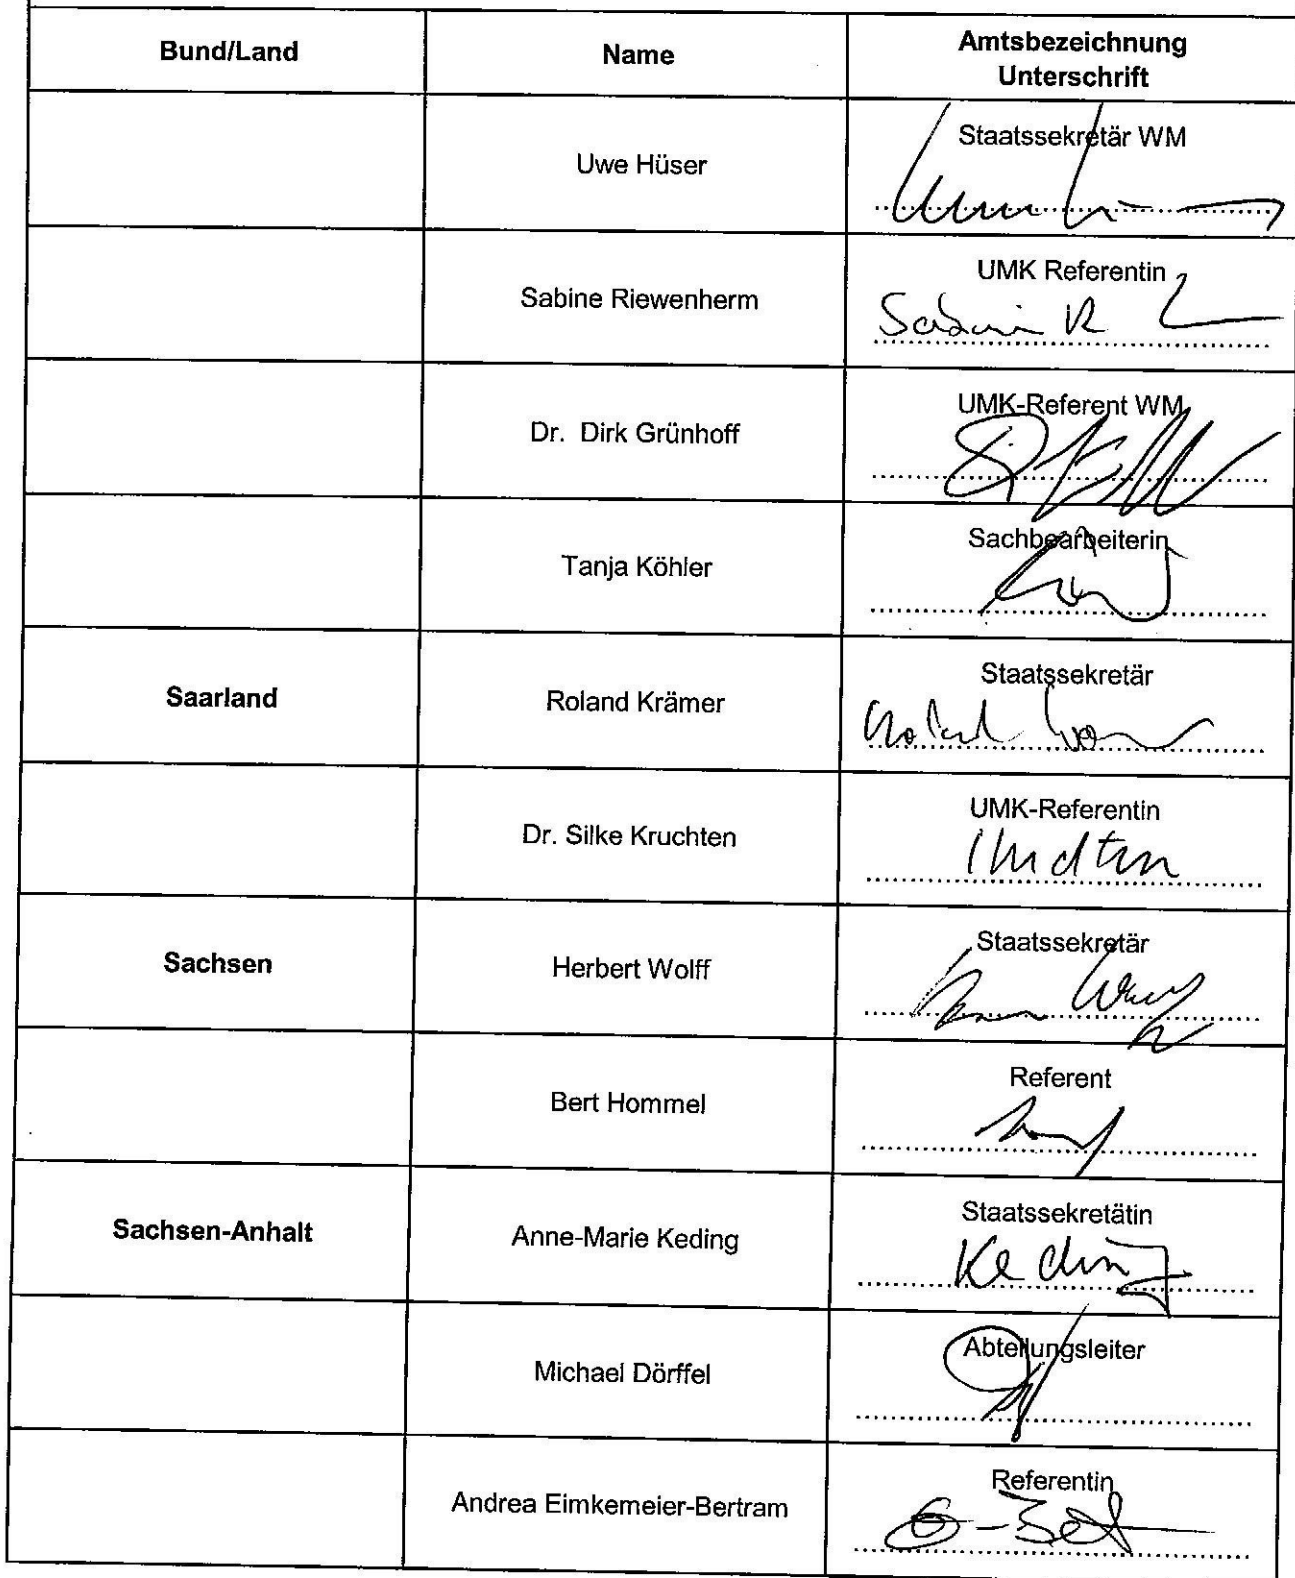 Bund/Land
Name
Amtsbezeichnung
Unterschrift
Uwe Hüser
Staatssekretär WM
Sabine Riewenherm
UMK Referentin
Dr. Dirk Grünhoff
UMK-Referent WM
Tanja Köhler
Sachbearbeiterin
Saarland
Roland Krämer
Staatssekretär
Dr. Silke Kruchten
UMK-Referentin
Sachsen
Herbert Wolff
Staatssekretär
Bert Hommel
Referent
Sachsen-Anhalt
Anne-Marie Keding
Staatssekretätin
Keding
Michael Dörffel
Abteilungsleiter
Andrea Eimkemeier-Bertram
Referentin